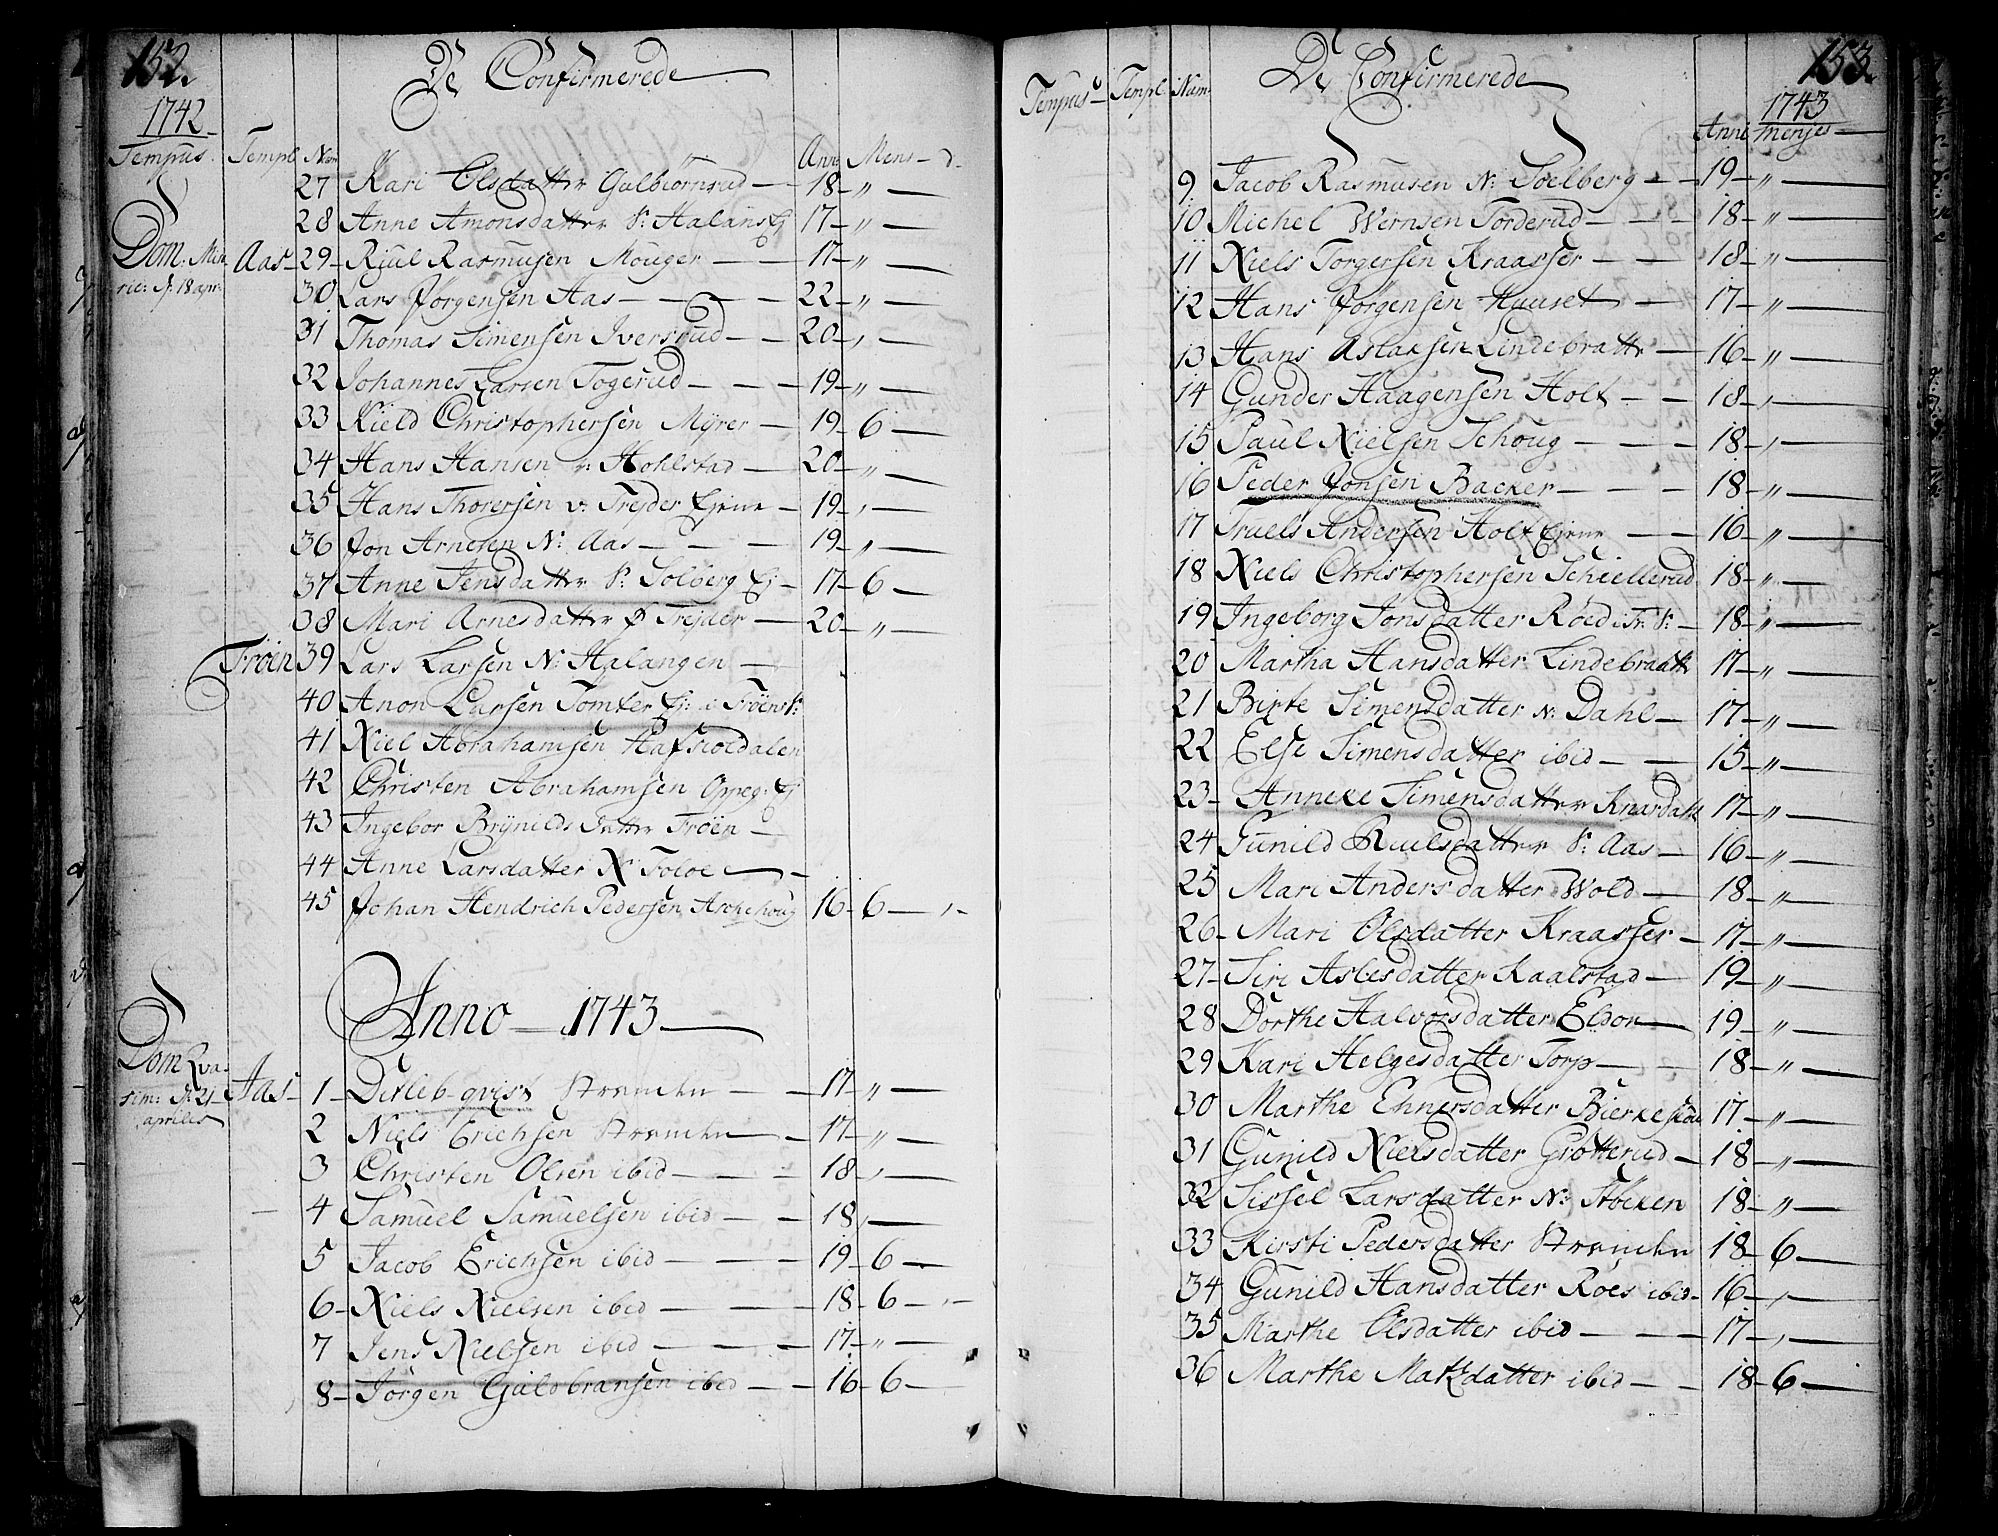 152.
De Confirmerede
1742
Tempus. Templ Num Ann: Mens- d-
27 Kari Olsdatter Gulbiørnrud — 18-"—
28 Anne Amonsdatter S: Halans Ej 17-"—
Dom. Miseric: d. 18 apr: Aas- 29- Rjul Rasmusen Mouger — 17-"—
30 Lars Jørgensen Aas — 22-"—
31 Thomas Simensen Iversrud — 20-,—
32 Johannes Larsen Togerud — 19-"—
33 Kield Christophersen Myrer — 19-6—
34 Hans Hansen v: Hohlstad — 20-"—
35 Hans Thorersen v: Trejder Ejene — 19-,—
36 Jon Arnesen N: Aas — 19-"—
37 Anne Jensdatter S: Solberg Ej- 17-6—
38 Mari Arnesdatter Ø Trejder — 20-"—
Frøen 39 Lars Larsen N: Halangen —
40 Anon Larsen Tomter Ej: i Frøens S:
41 Niel Abrahamsen Hafsioldalen
42 Christen Abrahamsen Oppeg: Ej
43 Ingebor Brynilds Datter Frøen —
44 Anne Larsdatter N Foloe —
45 Johan Hendrich Pedersen Askehoug 16-6—,-
Anno — 1743 —
Dom Qvasim: d. 21 aprilis Aas- 1- Ditleb qvist — 17-"—
2 Niels Erichsen — 17-"—
3 Christen Olsen ibid — 18-,—
4 Samuel Samuelsen ibid — 18,—
5 Jacob Erichsen ibid — 19-6—
6- Niels Nielsen ibid — 18-6—,-
7 Jens Nielsen ibid — 17-"—
8- Jørgen Guldbransen ibid — 16-6—
153.
De Confirmerede
1743
Tempus- Templ. Num. Anni menses —
9 Jacob Rasmusen N: Soelberg — 19-"—
10 Michel Wernsen Torderud — 18-"—
11 Niels Torgersen Kraasser — 18-"—
12 Hans Jørgensen Huuset — 17-"—
13 Hans Aslaksen Lindebratte — 16-"—
14 Gunder Haagensen Holt — 18-,—
15 Paul Nielsen Schoug — 18-,—
16 Peder Jonsen Backer — 18-"—
17 Truels Andersen Holt Ejene — 16-"—
18 Niels Christophersen Schiellerud 18-"—
19 Ingeborg Jonsdatter Røed i Fr: S: 18-"—
20 Martha Hansdatter Lindebraatte 17-"—
21 Birte Simensdatter N: Dahl — 17-"—
22 Else Simensdatter ibid — 15-"—
23- Anneke Simensdatter Knardahl 17-"—
24 Gunild Riulsdatter S: Aas — 16-"—
25 Mari Andersdatter Wold — 18-"—
26- Mari Olsdatter Kraasser — 17-"—
27- Siri Aslesdatter Kaalstad — 19-"—
28 Dorthe Halvorsdatter Eldor — 19-"—
29 Kari Helgesdatter Torp — 18-"—
30 Marthe Ehnersdatter 17-"—
31 Gunild Nielsdatter Grøtterud — 18-"—
32 Sissel Larsdatter N: Støcken 18-"—
33 Kirsti Pedersdatter 18-6—
34 Gunild Hansdatter Roes ibid- 16-,—
35 Marthe Olsdatter ibid — 17-,—
36 Marthe Matzdatter ibid — 18-6—